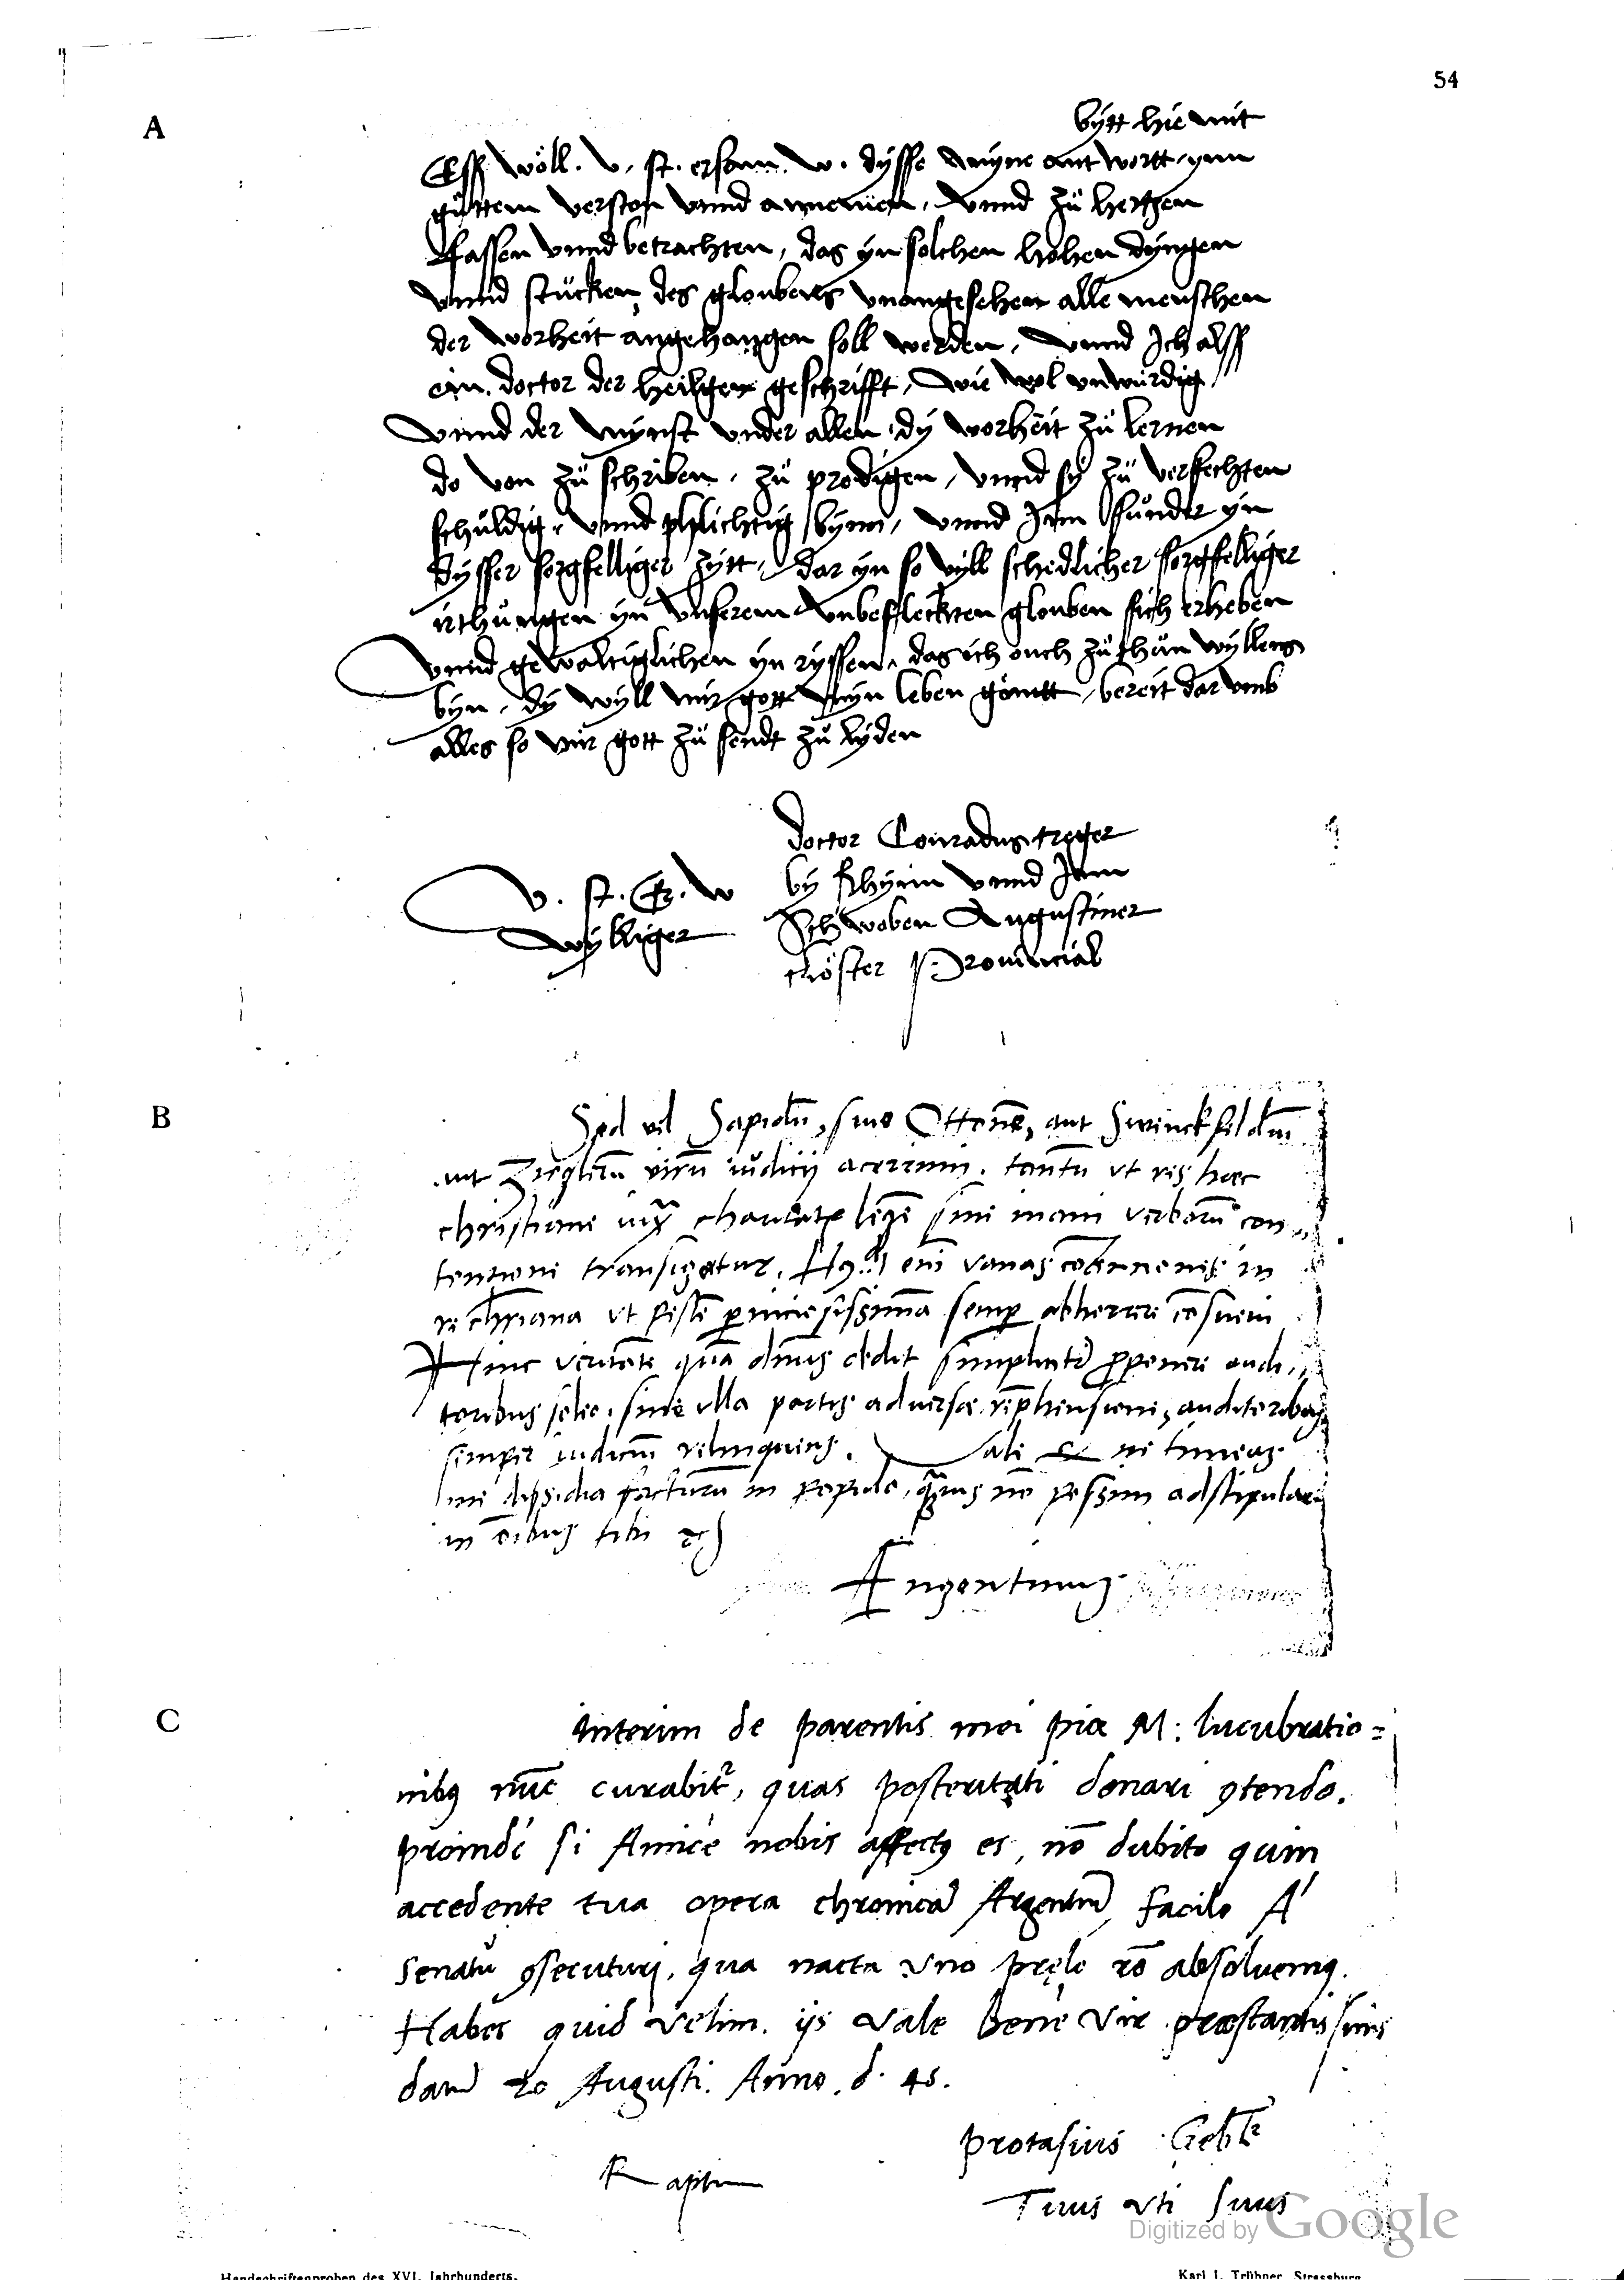 54
A
bytt hie mit
Esß wöll. v. st. ersam. w. dysse myne antwortt, ynn
güttem verston vnnd annemen, vnnd zü hertzen
fassen vnnd betrachten, das yn solchen hohen dyngen
vnnd stücken des gloubens vnangesehen alle menschen
der worheit angehangen soll werden, vnnd Ich alsß
ein doctor der heiligen geschrifft, wie wol vnwürdig,
vnnd der mynst vnder allen, dy worheit zü lernen
do von zü schriben, zü predigen, vnnd sy zü verfechten
schuldig, vnnd phlichtig bynn, vnnd Inn sunder yn
dysser sorgfelliger zytt, dar yn so vyll schedlicher sorgfelliger
irthumgen yn vnserem vnbefleckten glouben sich erheben
vnnd gewaltiglichen yn ryssen, das ich ouch zü thün wyllens
byn, dy wyll mir gott myn leben gönntt, bereit dar vmb
alles so mir gott zü sendt zü lyden
doctor Conradus treger
v. st. E. w by Rhynn vnnd Inn
wylliger Schwoben Augustiner
clöster Provincial
B
Sed vel Sapidū, siue Ottonē, aut Swinckfeldiū
aut Zieglerū virū iudicij acerrimi. tantū vt res hęc
christiane iuxᵃ charitatis legē sine inani verborū con
tentione transigatur. enī vanas cōtentiones in
re chriana vt pestē perniciosissimā semp abhorrere cōsueui
Hinc veritatē quā dnūs dedit simpliciter proponere audi-
toribus soleo, sine vlla partis aduersę reprehensione, auditoribus
semper iudiciū relinquens. Vale & ne timeas
me dissidia facturū in populo, quāuis nō possim adstipulari
in oībus tibi
Argentinus
C
Interim de parentis mei piæ M: lucubratio=
nibꝰ nūc curabiť, quas posteritati donari ꝯtendo.
proinde si Amice nobis affectꝰ es, nō dubito quin
accedente tua opera chronicā Argentinā facile A
Senatu ꝯsecuturi, qua nacta vno prelo rē absoluemꝰ.
Habes quid velim. ijs vale bene vir præstantissime
datū 20 Augusti. Anno. d. 45.
Protasius Gebl
Raptim
Tuus vti suus
Digitized by Google
Handschriftenproben des XVI. Jahrhunderts.
Karl J. Trübner, Strassburg